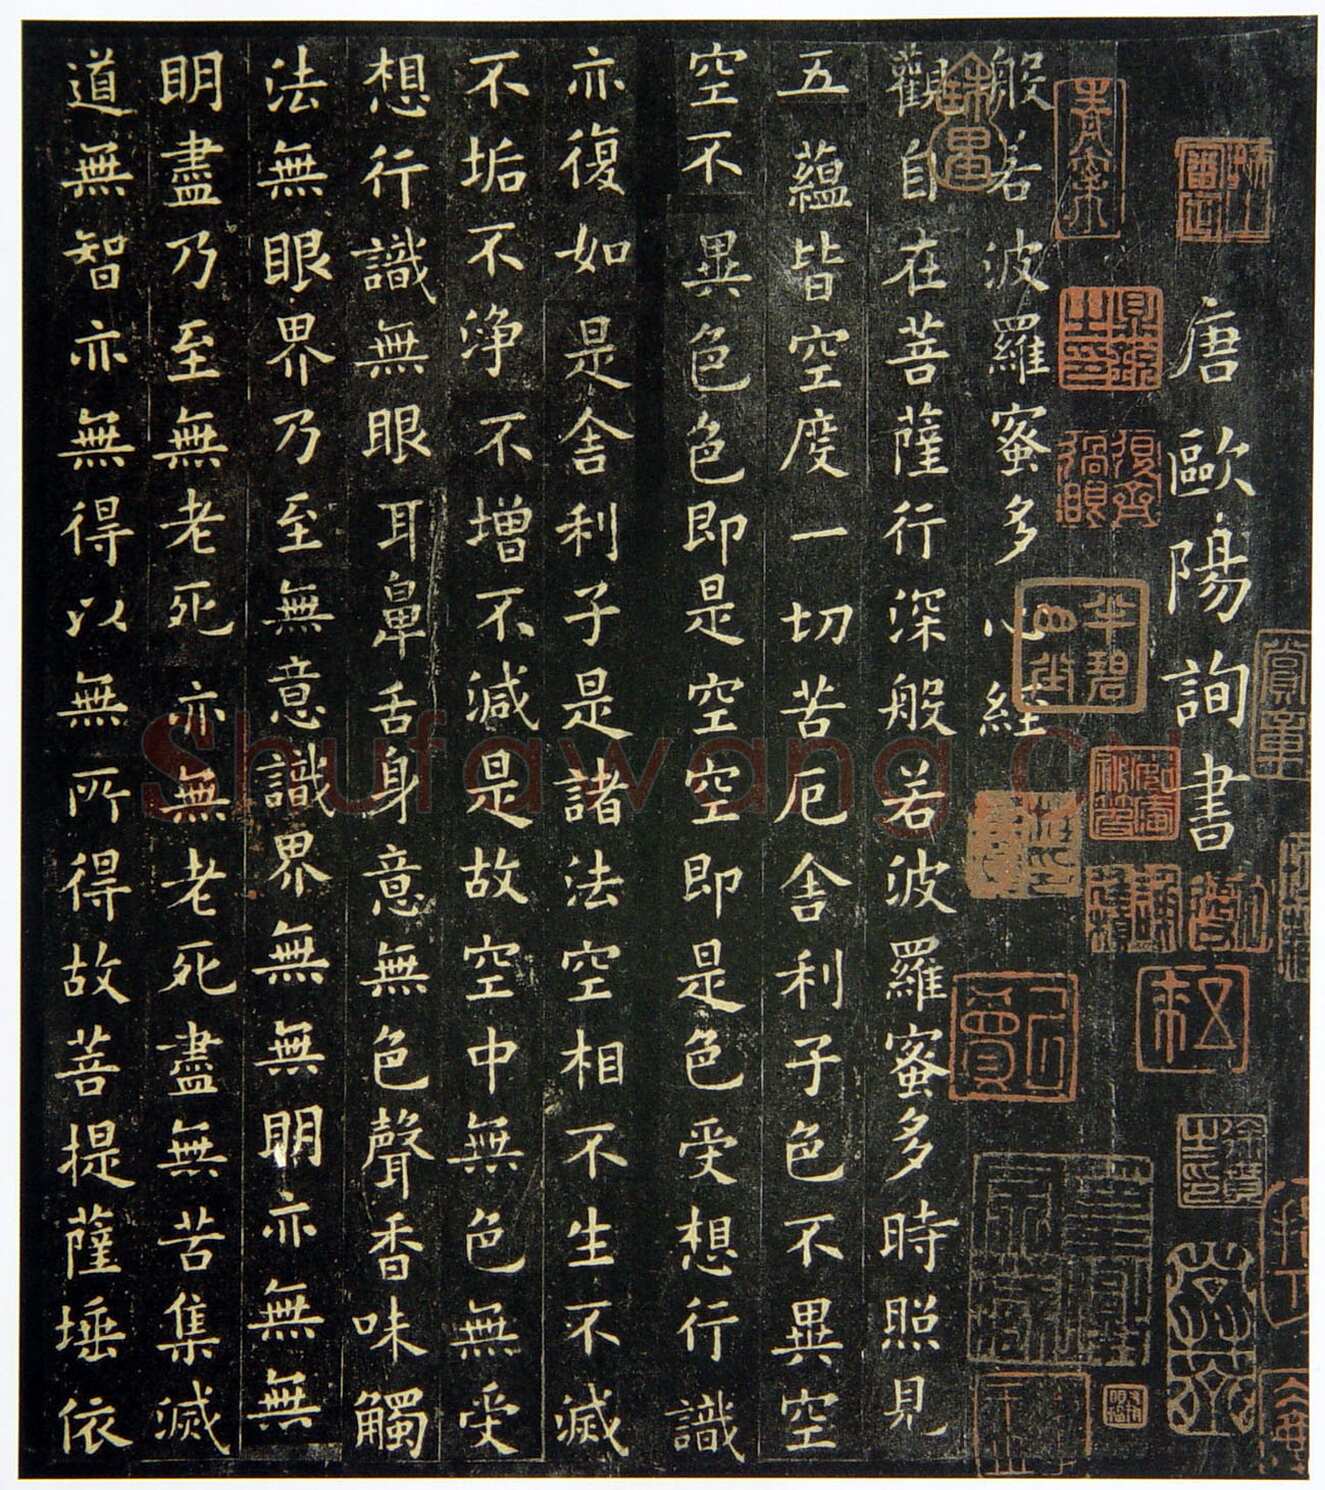 唐歐陽詢書
般若波羅蜜多心經
觀自在菩薩行深般若波羅蜜多時照見
五蘊皆空度一切苦厄舍利子色不異空
空不異色色即是空空即是色受想行識
亦復如是舍利子是諸法空相不生不滅
不垢不淨不增不減是故空中無色無受
想行識無眼耳鼻舌身意無色聲香味觸
法無眼界乃至無意識界無無明亦無無
明盡乃至無老死亦無老死盡無苦集滅
道無智亦無得以無所得故菩提薩埵依
Shufawang.CN